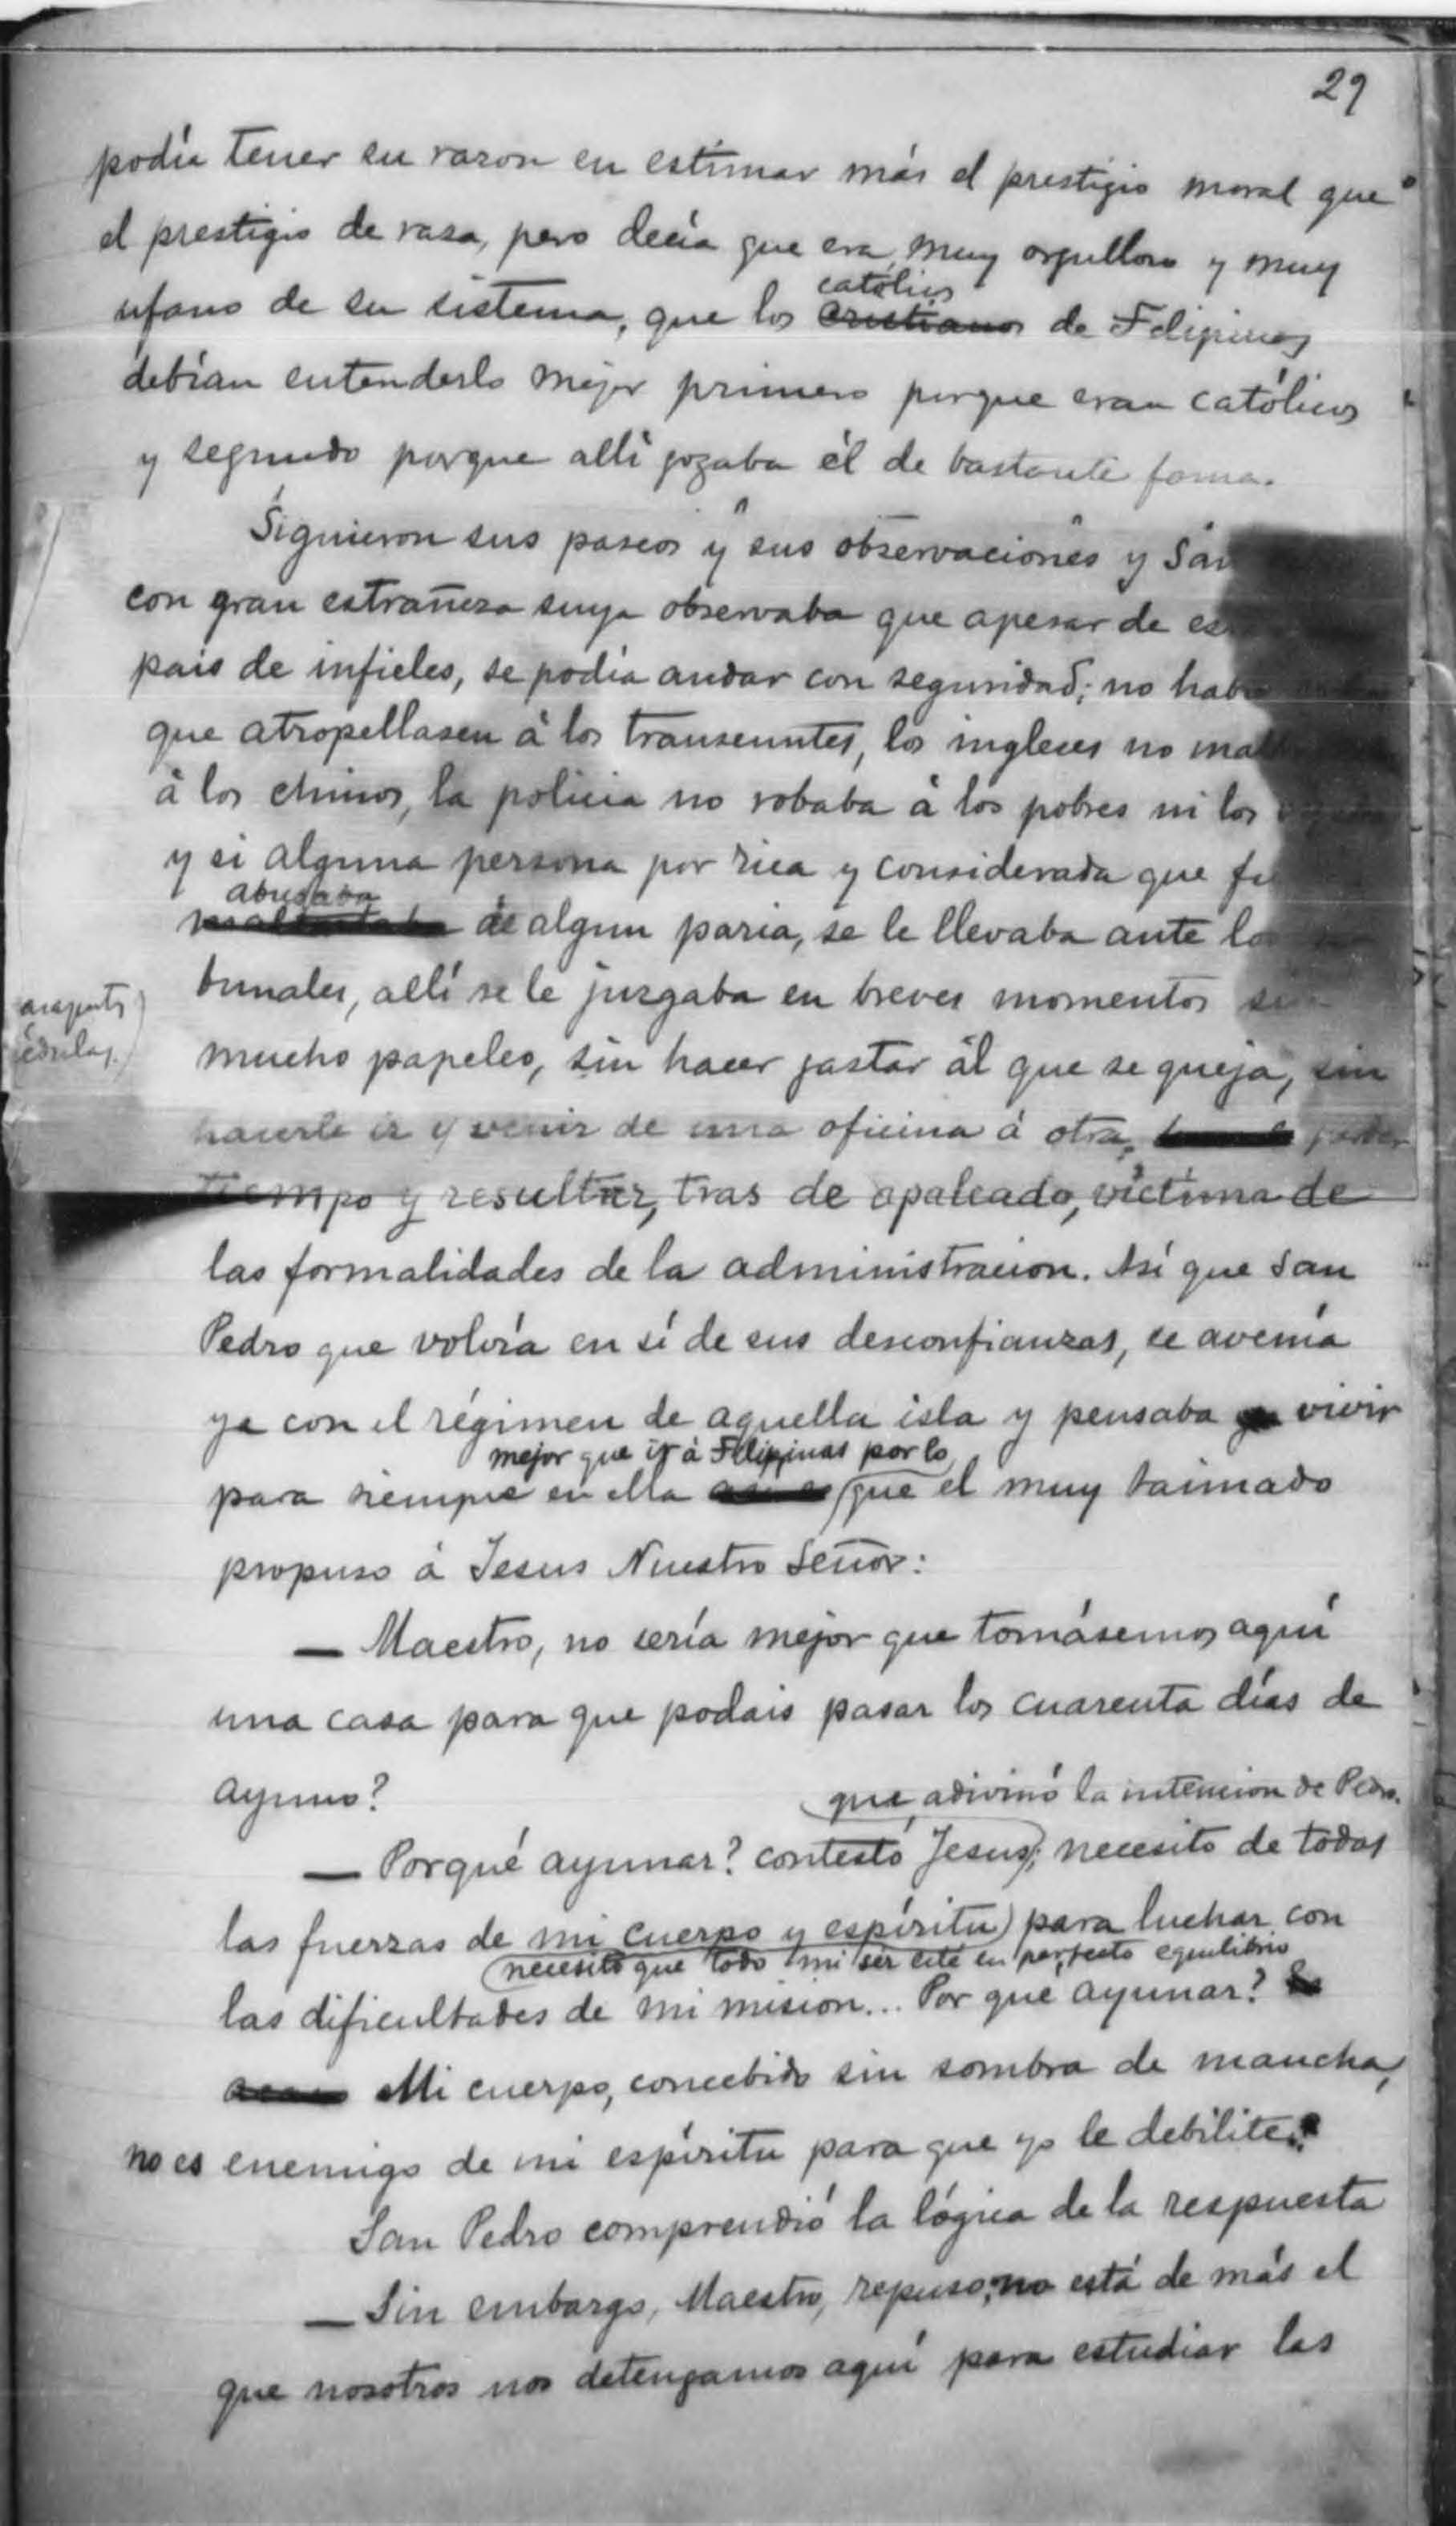 29
podía tener su razon en estimar más el prestigio moral que
el prestigio de raza, pero decía que era muy orgulloso y muy
católicos
ufano de su sistema, que los cristianos de Filipinas
debían entenderlo mejor primero porque eran católicos
y segundo porque allí gozaba él de bastante fama.
Siguieron sus paseos y sus observaciones y San
con gran estrañeza suya observaba que apesar de es
país de infieles, se podía andar con seguridad; no había
que atropellasen á los transeuntes, los ingleses no mal
á los chinos, la policia no robaba á los pobres ni los
y si alguna persona por rica y considerada que fu
abusaba
maltrataba de algun paria, se le llevaba ante los
bunales, allí se le juzgaba en breves momentos sin
mucho papeleo, sin hacer gastar ál que se queja, sin
hacerle ir y venir de una oficina á otra, perder
tiempo y resultar, tras de apaleado, víctima de
las formalidades de la administracion. Así que San
Pedro que volvía en sí de sus desconfianzas, se avenía
ya con el régimen de aquella isla y pensaba vivir
mejor que ir á Filippinas por lo
para siempre en ella que el muy taimado
propuso á Jesus Nuestro Señor:
— Maestro, no sería mejor que tomásemos aquí
una casa para que podais pasar los cuarenta días de
ayuno?
que adivinó la intencion de Pedro.
— Porqué ayunar? contestó Jesus; necesito de todas
las fuerzas de mi cuerpo y espíritu para luchar con
necesito que todo mi sér esté en perfecto equilibrio
las dificultades de mi mision... Por qué ayunar?
Mi cuerpo, concebido sin sombra de mancha,
no es enemigo de mi espíritu para que yo le debilite.
San Pedro comprendió la lógica de la respuesta
— Sin embargo, Maestro, repuso, no está de más el
que nosotros nos detengamos aquí para estudiar las